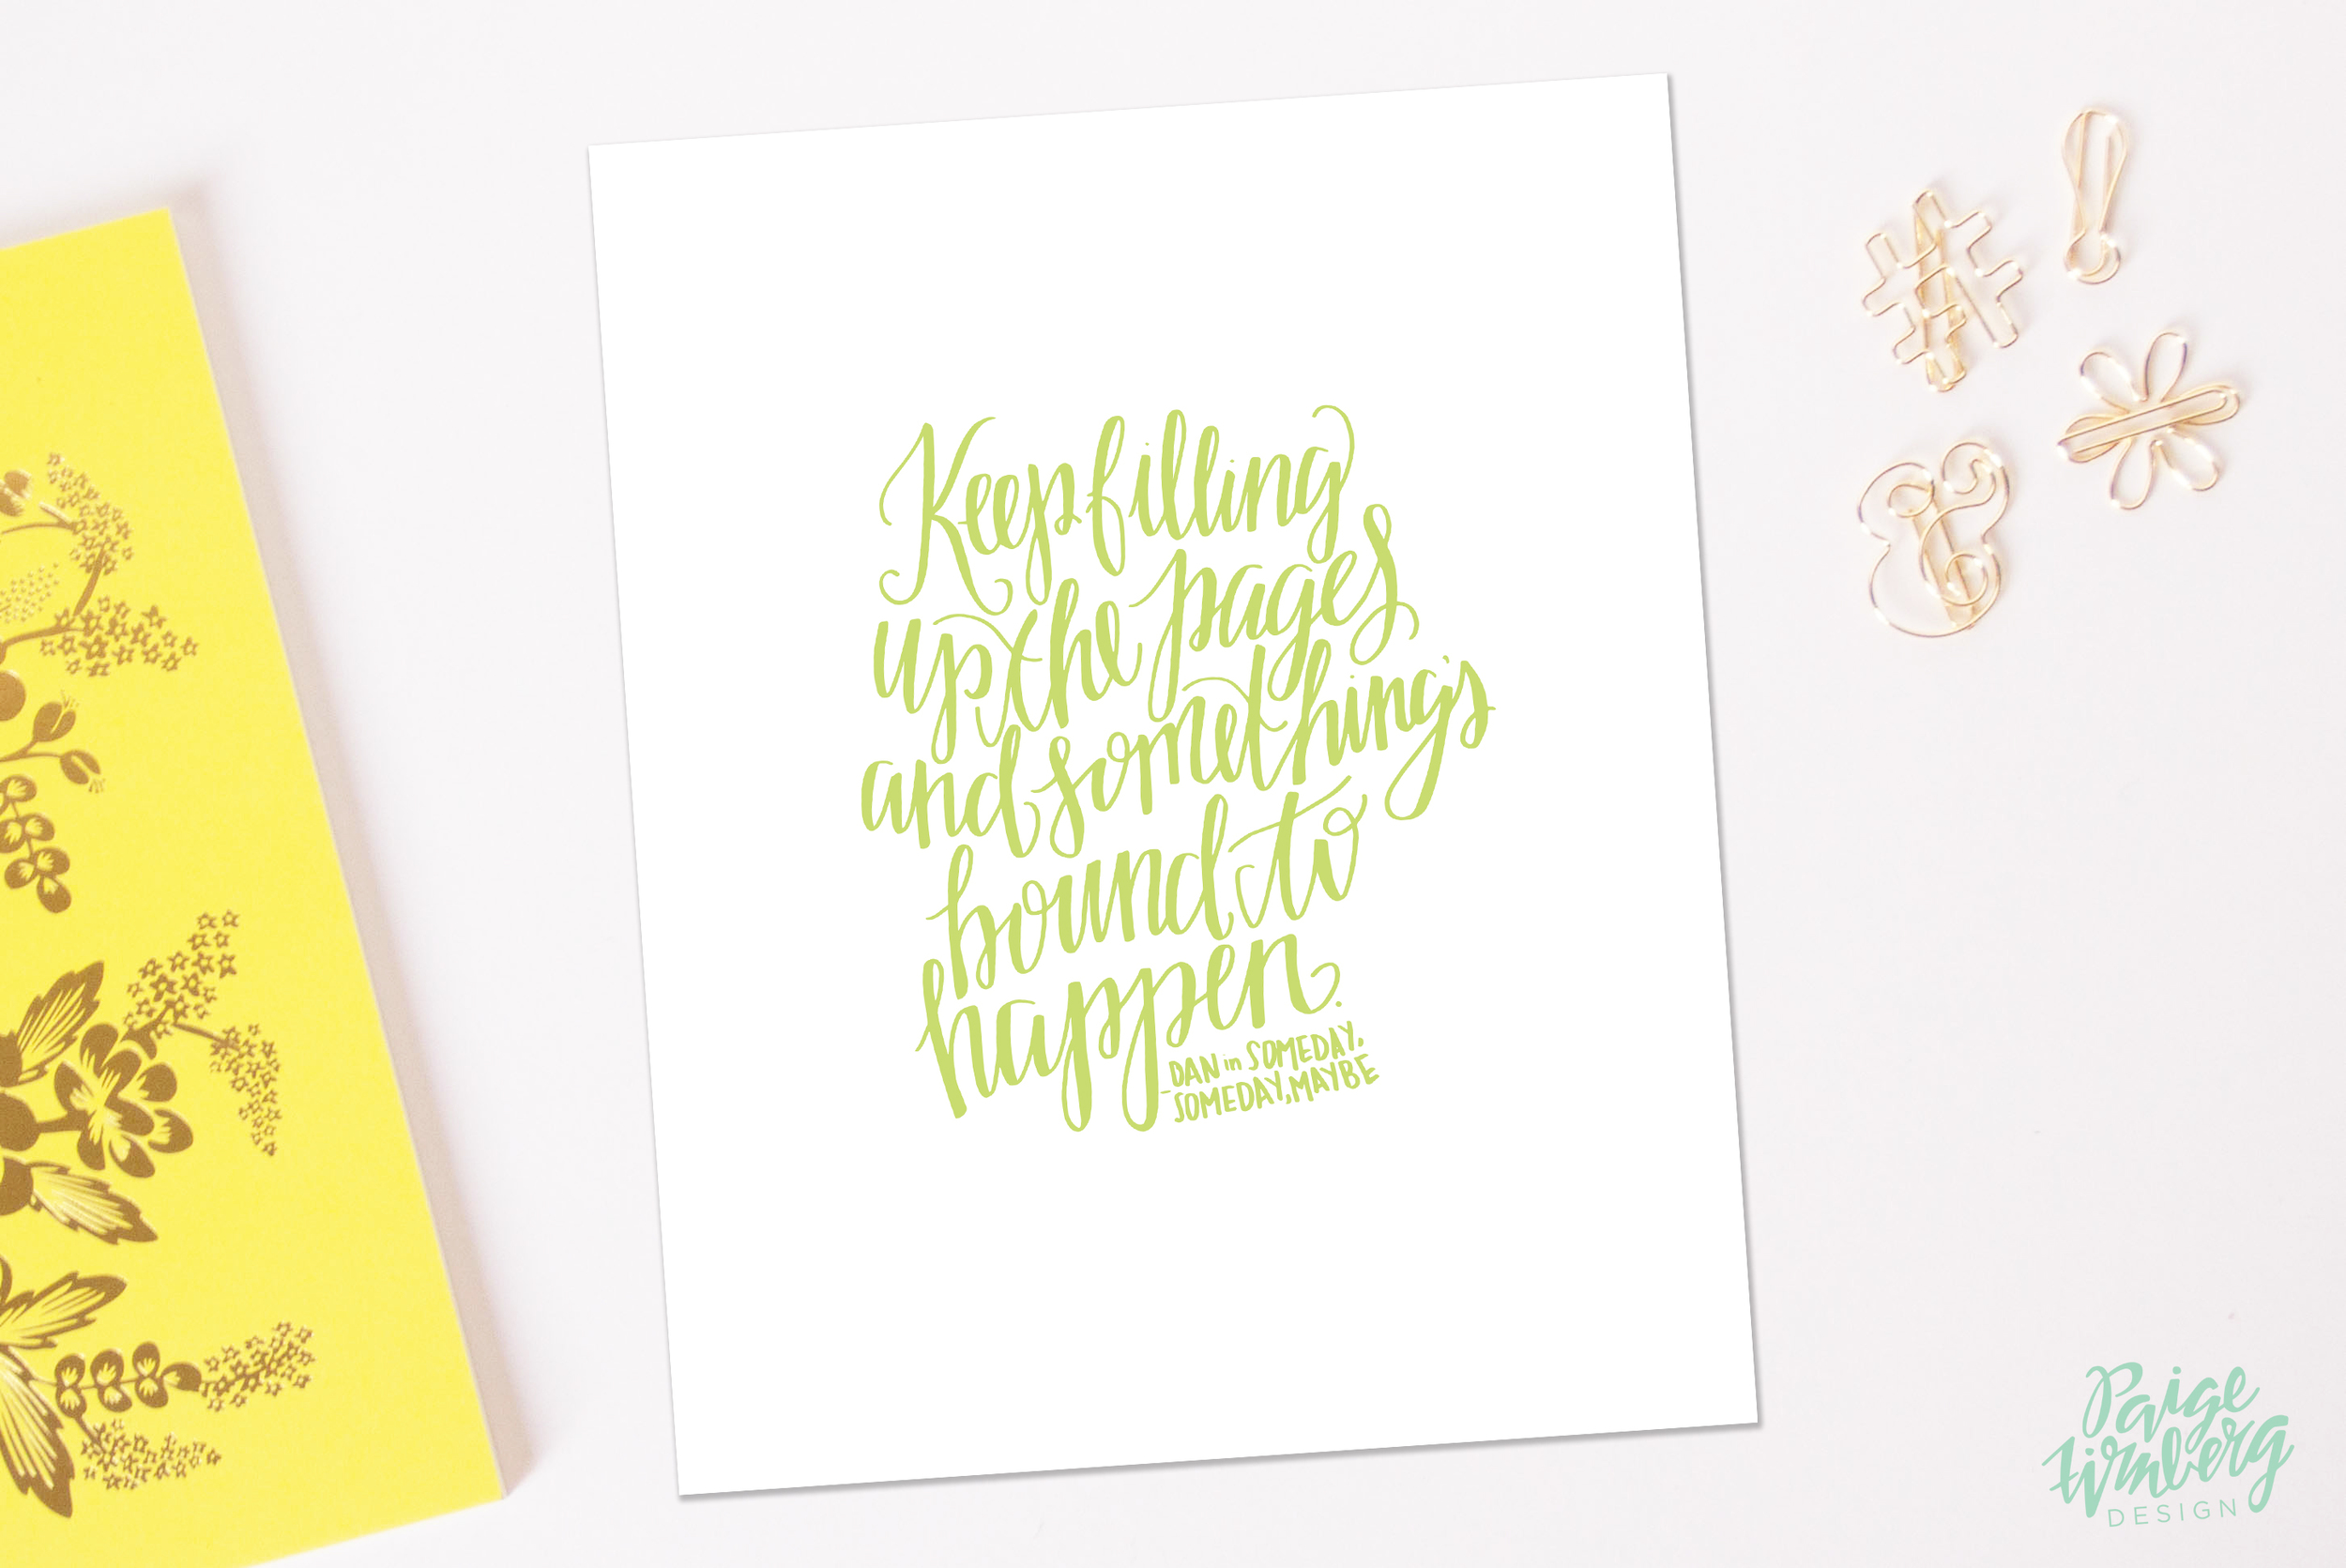 Keep filling
up the pages
and something's
bound to
happen.
- DAN in SOMEDAY,
SOMEDAY, MAYBE
Paige
Firnberg
DESIGN